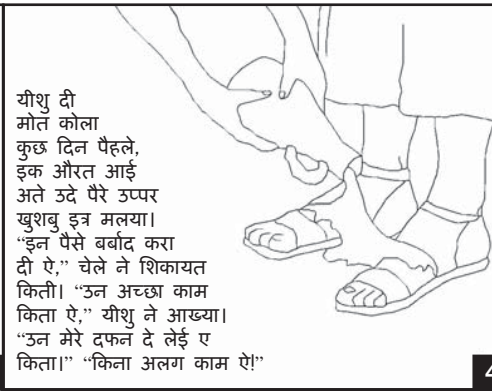 यीशु दी
मोत कोला
कुछ दिन पैहले,
इक औरत आई
अते उदे पैरे उप्पर
खुशबु इत्र मलया।
“इन पैसे बर्बाद करा
दी ऐ,” चेले ने शिकायत
किती। “उन अच्छा काम
किता ऐ,” यीशु ने आख्या।
“उन मेरे दफन दे लेई ए
किता।” “किना अलग काम ऐ!”
4